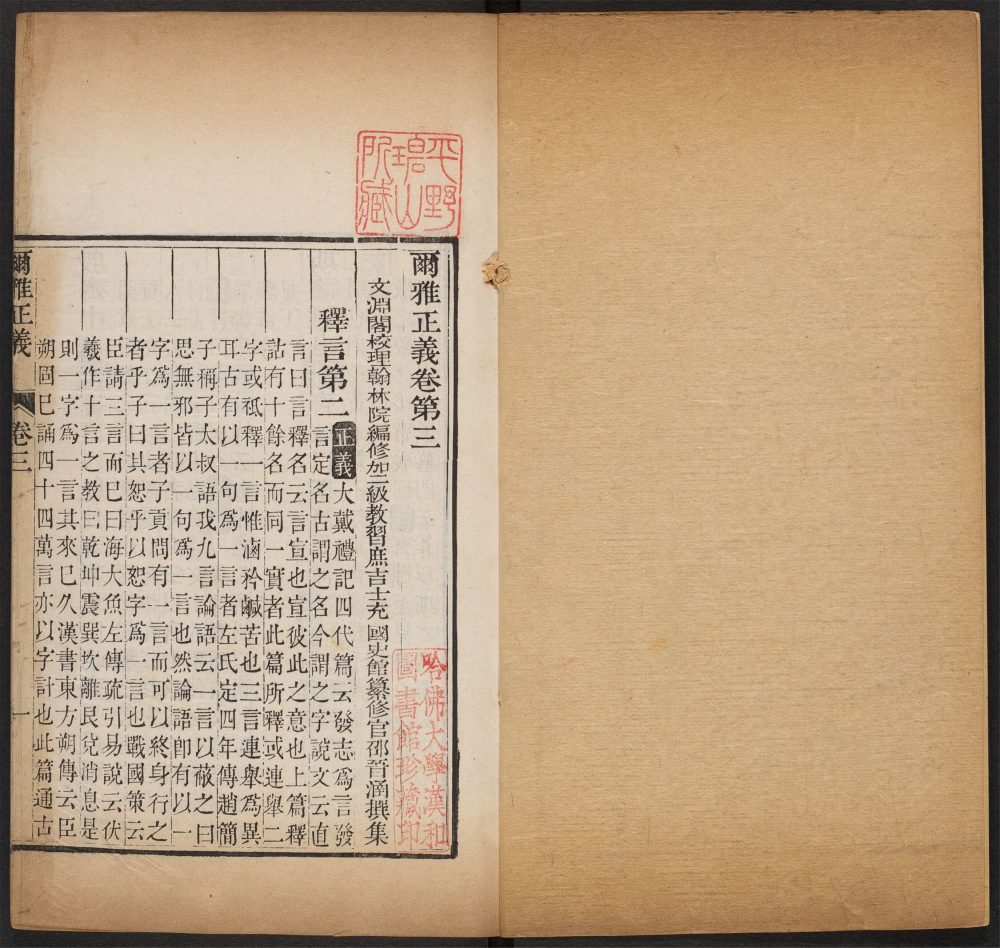 平野
碧山
所藏
爾雅正義卷第三
文淵閣校理翰林院編修加二級教習庶吉士充國史館纂修官邵晉涵撰集
哈佛大學漢和
圖書館珍藏印
釋言第二
正義
大戴禮記四代篇云發志爲言發
言定名古謂之名今謂之字說文云直
言曰言釋名云言宣也宣彼此之意也上篇釋
詁有十餘名而同一實者此篇所釋或連舉二
字或祇釋一言惟滷矜鹹苦也三言連舉爲異
耳古有以一句爲一言者左氏定四年傳趙簡
子稱子太叔語我九言論語云一言以蔽之曰
思無邪皆以一句爲一言也然論語卽有以一
字爲一言者子貢問有一言而可以終身行之
者乎子曰其恕乎以恕字爲一言也戰國策云
臣請三言而巳曰海大魚左傳疏引易說云伏
羲作十言之敎曰乾坤震巽坎離艮兌消息是
則一字爲一言其來巳久漢書東方朔傳云臣
朔固巳誦四十四萬言亦以字計也此篇通古
爾雅正義
卷三
一